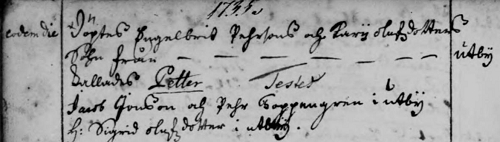 1733.
eodem die Döptes Engelbrit Pehrsons och Karij olufzdotters
Sohn från — — — — — — — utbÿ
kallades Petter Testes
Jacob Jonson och Pehr Koppengren i utbÿ
h: Sigrid olufzdotter i utbÿ.